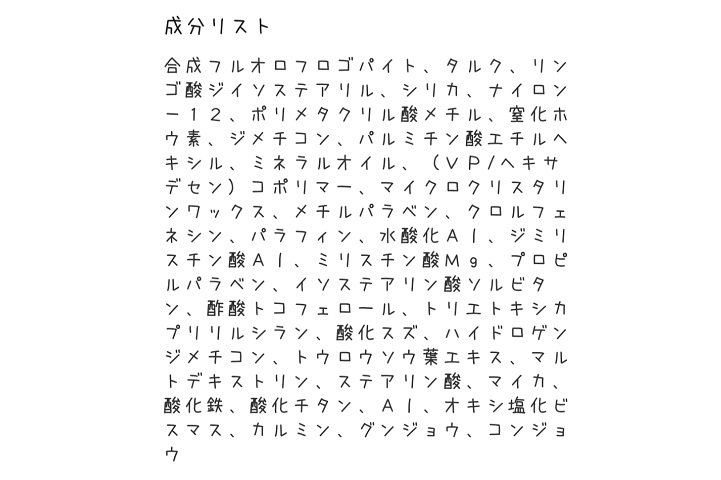 成分リスト
合成フルオロフロゴパイト、タルク、リン
ゴ酸ジイソステアリル、シリカ、ナイロン
ー１２、ポリメタクリル酸メチル、窒化ホ
ウ素、ジメチコン、パルミチン酸エチルヘ
キシル、ミネラルオイル、（ＶＰ/ヘキサ
デセン）コポリマー、マイクロクリスタリ
ンワックス、メチルパラベン、クロルフェ
ネシン、パラフィン、水酸化Ａｌ、ジミリ
スチン酸Ａｌ、ミリスチン酸Ｍｇ、プロピ
ルパラベン、イソステアリン酸ソルビタ
ン、酢酸トコフェロール、トリエトキシカ
プリリルシラン、酸化スズ、ハイドロゲン
ジメチコン、トウロウソウ葉エキス、マル
トデキストリン、ステアリン酸、マイカ、
酸化鉄、酸化チタン、Ａｌ、オキシ塩化ビ
スマス、カルミン、グンジョウ、コンジョ
ウ